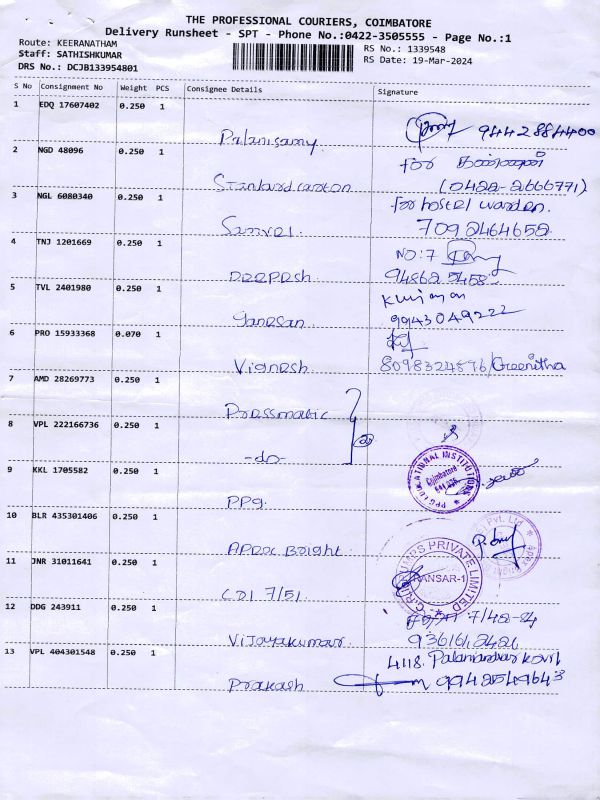 THE PROFESSIONAL COURIERS, COIMBATORE
Delivery Runsheet - SPT - Phone No.:0422-3505555 - Page No.:1
Route: KEERANATHAM
Staff: SATHISHKUMAR
DRS No.: DCJB133954801
RS No.: 1339548
RS Date: 19-Mar-2024
S No Consignment No Weight PCS Consignee Details Signature
1 EDQ 17607402 0.250 1
Palanisamy 9442884400
2 NGD 48096 0.250 1
for
Standard carton (0422-2666771)
3 NGL 6080340 0.250 1
for hostel warden.
7092464652
4 TNJ 1201669 0.250 1
NO: 7
Deepesh 94862 5458
5 TVL 2401980 0.250 1
Ganesan 9943049222
6 PRO 15933368 0.070 1
Vignesh 8098324876/Greenitha
7 AMD 28269773 0.250 1
Pressmatic
8 VPL 222166736 0.250 1
-do-
PPG EDUCATIONAL INSTITUTIONS
Coimbatore
9 KKL 1705582 0.250 1
PPG
10 BLR 435301406 0.250 1
Apex Bright
Pvt. Ltd
11 JNR 31011641 0.250 1
PRIVATE LIMITED
CDI 7/51
12 DDG 243911 0.250 1
7/42-24
Vijayakumar 9361612421
13 VPL 404301548 0.250 1
4118.
Prakash 9942549643